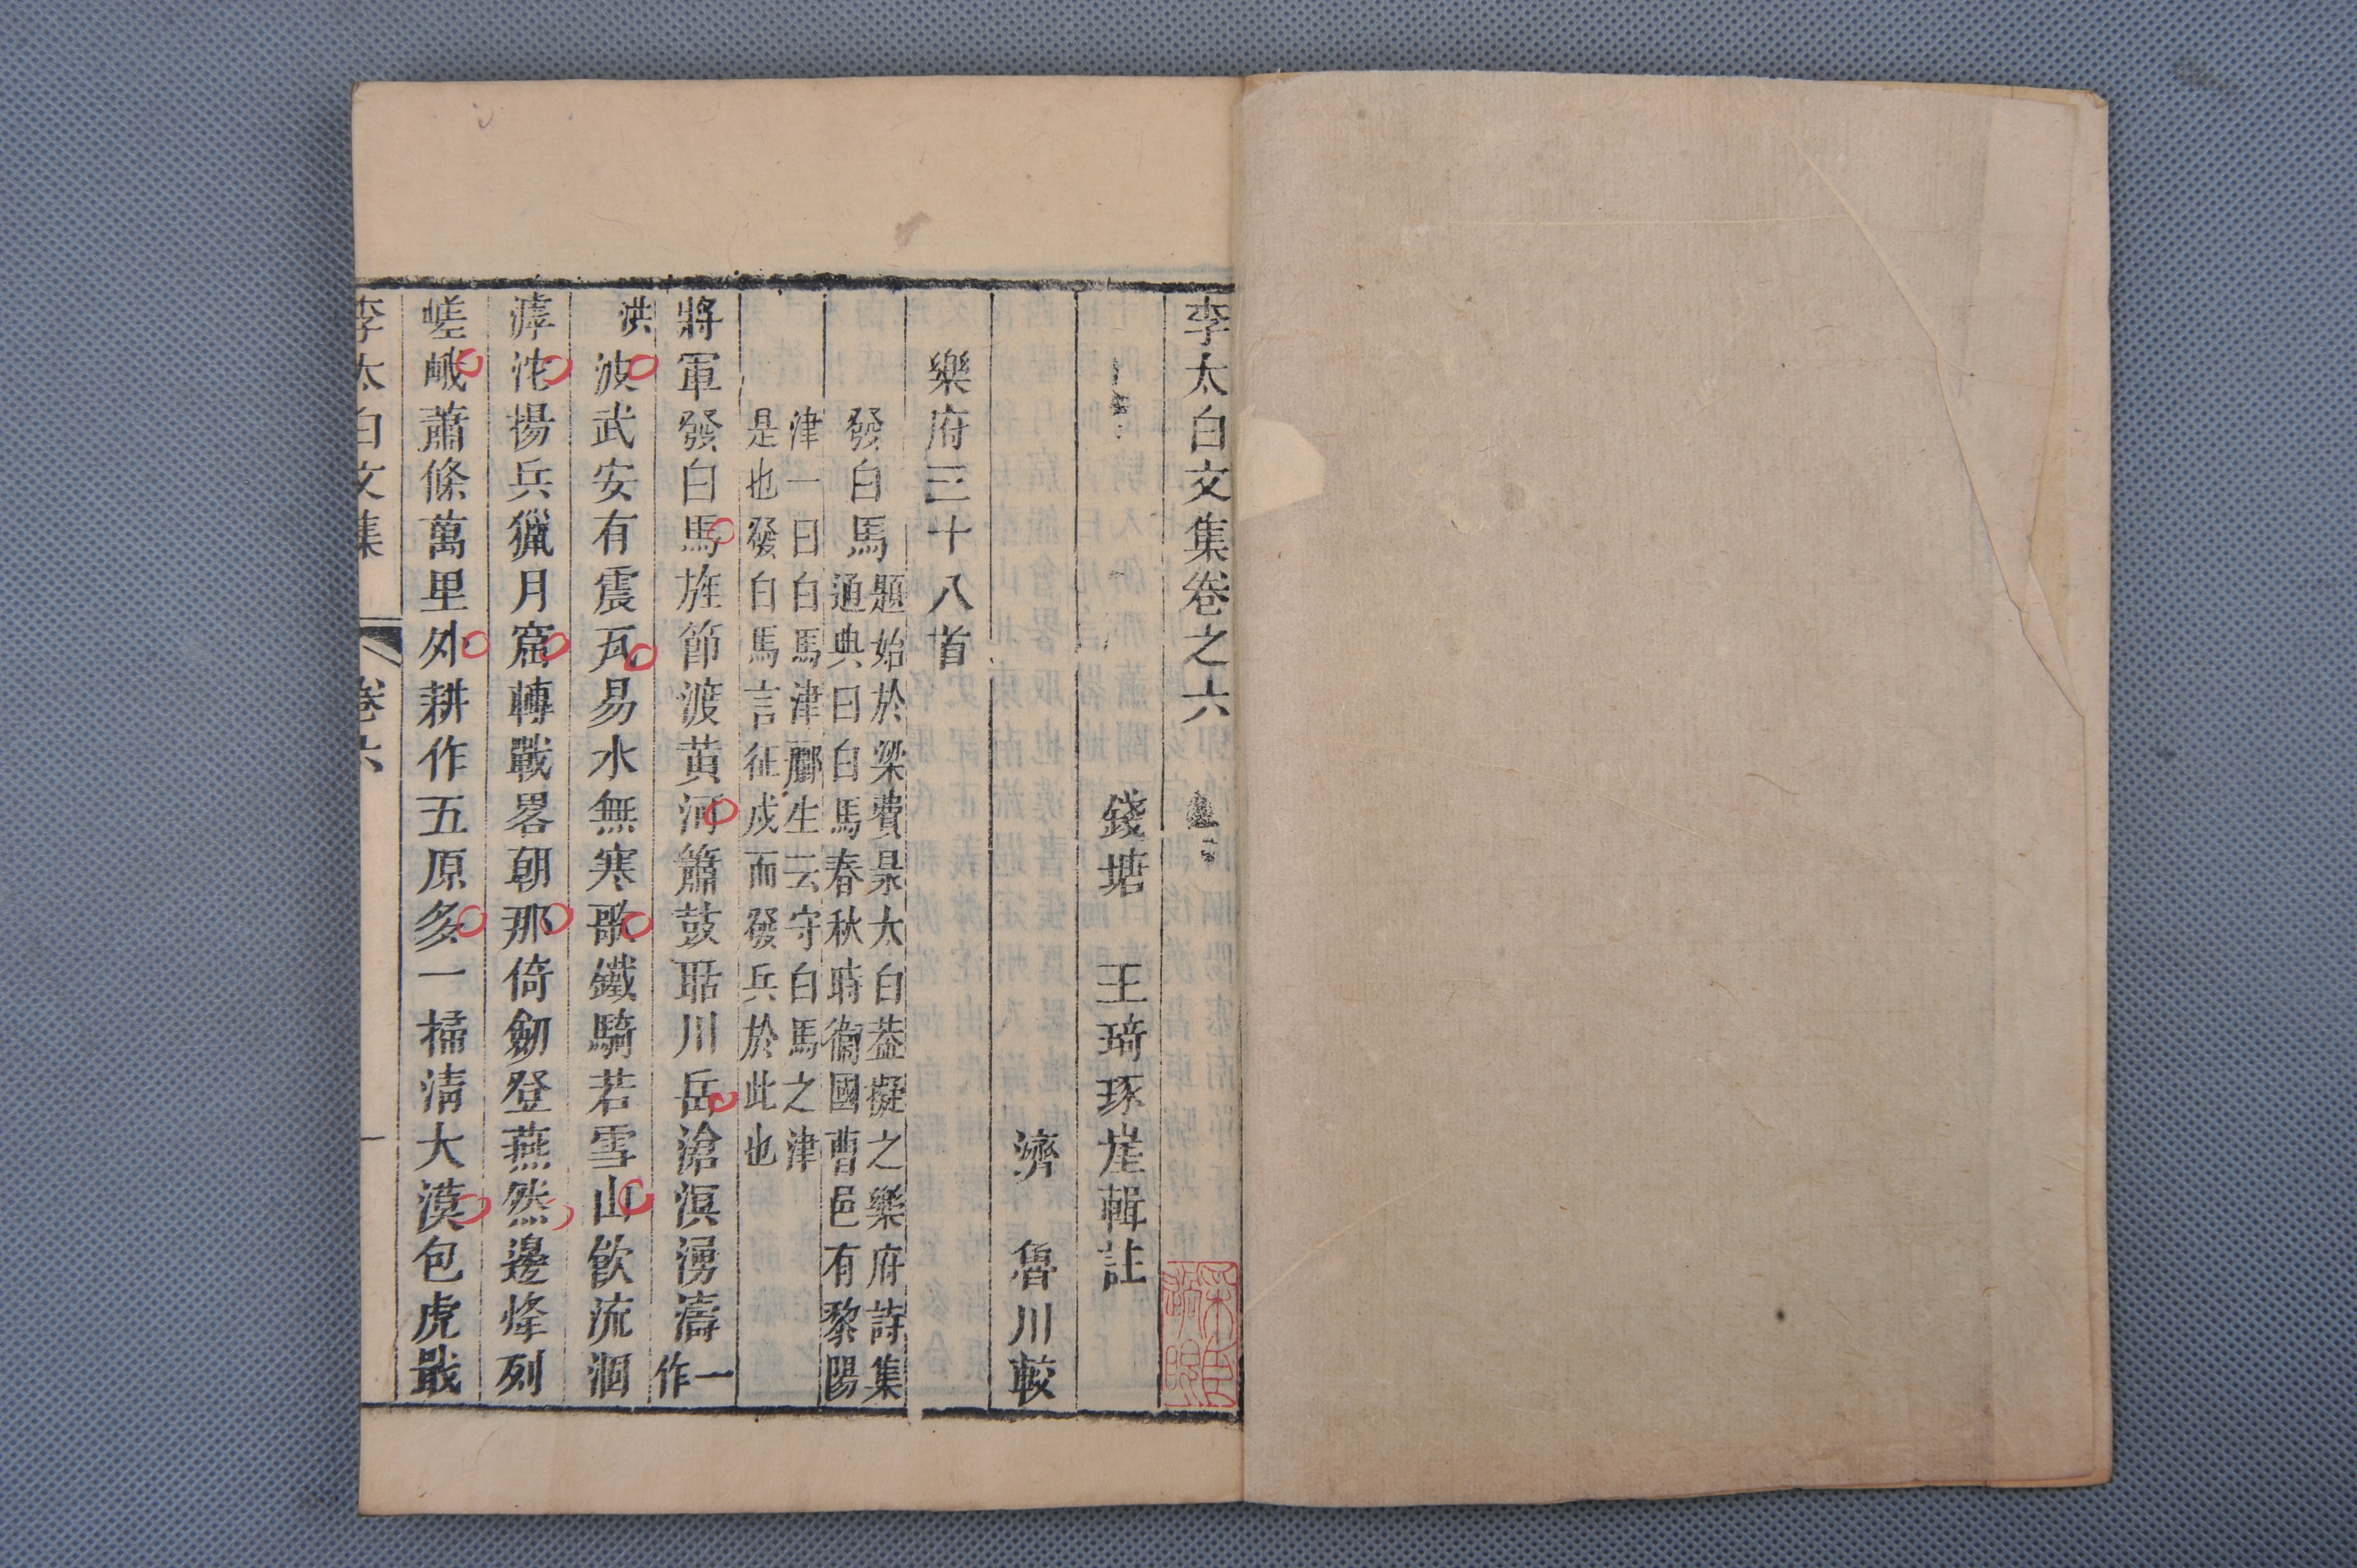 李太白文集卷之六
錢塘 王琦琢崖輯註
濟 魯川較
樂府三十八首
發白馬
題始於梁費㫤太白葢擬之樂府詩集
通典曰白馬春秋時衞國曹邑有黎陽
津一曰白馬津酈生云守白馬之津
是也發白馬言征戍而發兵於此也
將軍發白馬旌節渡黃河簫鼓聒川岳滄溟湧濤一作
洪波武安有震瓦易水無寒歌鐵騎若雪山飲流涸
滹沱揚兵獵月窟轉戰畧朝那倚劒登燕然邊烽列
嵯峨蕭條萬里外耕作五原多一掃清大漠包虎戢
李太白文集 卷六 一